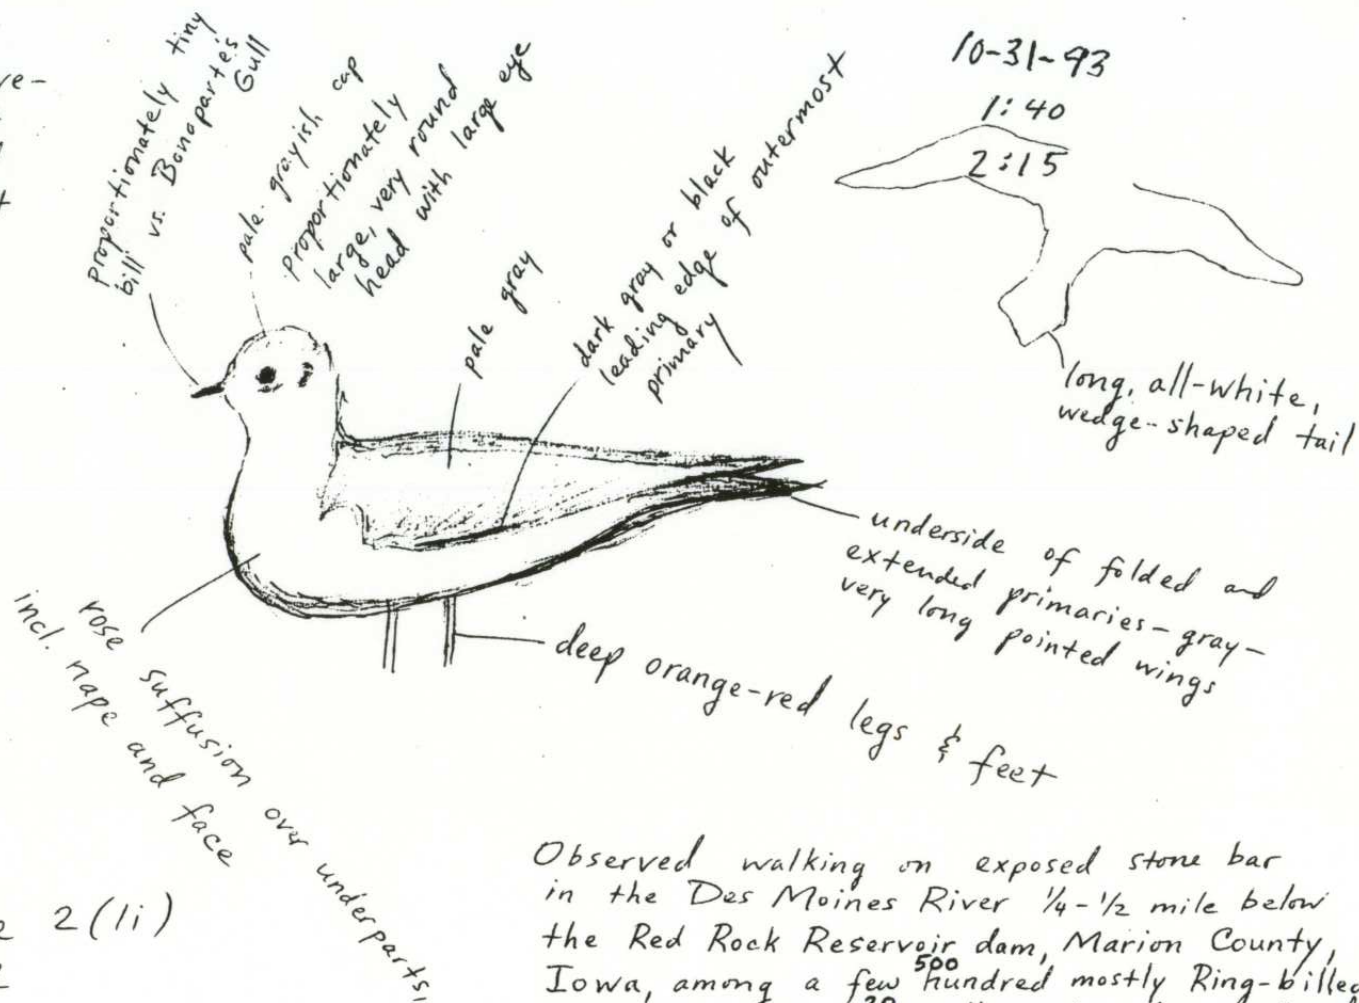 ve-
proportionately tiny
bill vs. Bonaparte's
Gull
pale grayish cap
proportionately
large, very round
head with large eye
pale gray
dark gray or black
leading edge of outermost
primary
10-31-93
1:40
2:15
long, all-white,
wedge-shaped tail
underside of folded and
extended primaries - gray -
very long pointed wings
deep orange-red legs & feet
rose suffusion over underparts,
incl. nape and face
2(1i)
Observed walking on exposed stone bar
in the Des Moines River 1/4 - 1/2 mile below
the Red Rock Reservoir dam, Marion County,
500
Iowa, among a few hundred mostly Ring-billed